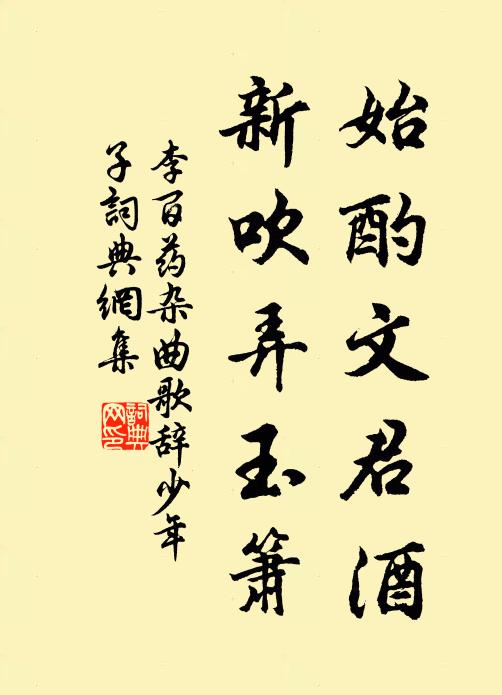 始酌文君酒
新吹弄玉箫
李百药杂曲歌辞少年
子詞典網集
詞典网印